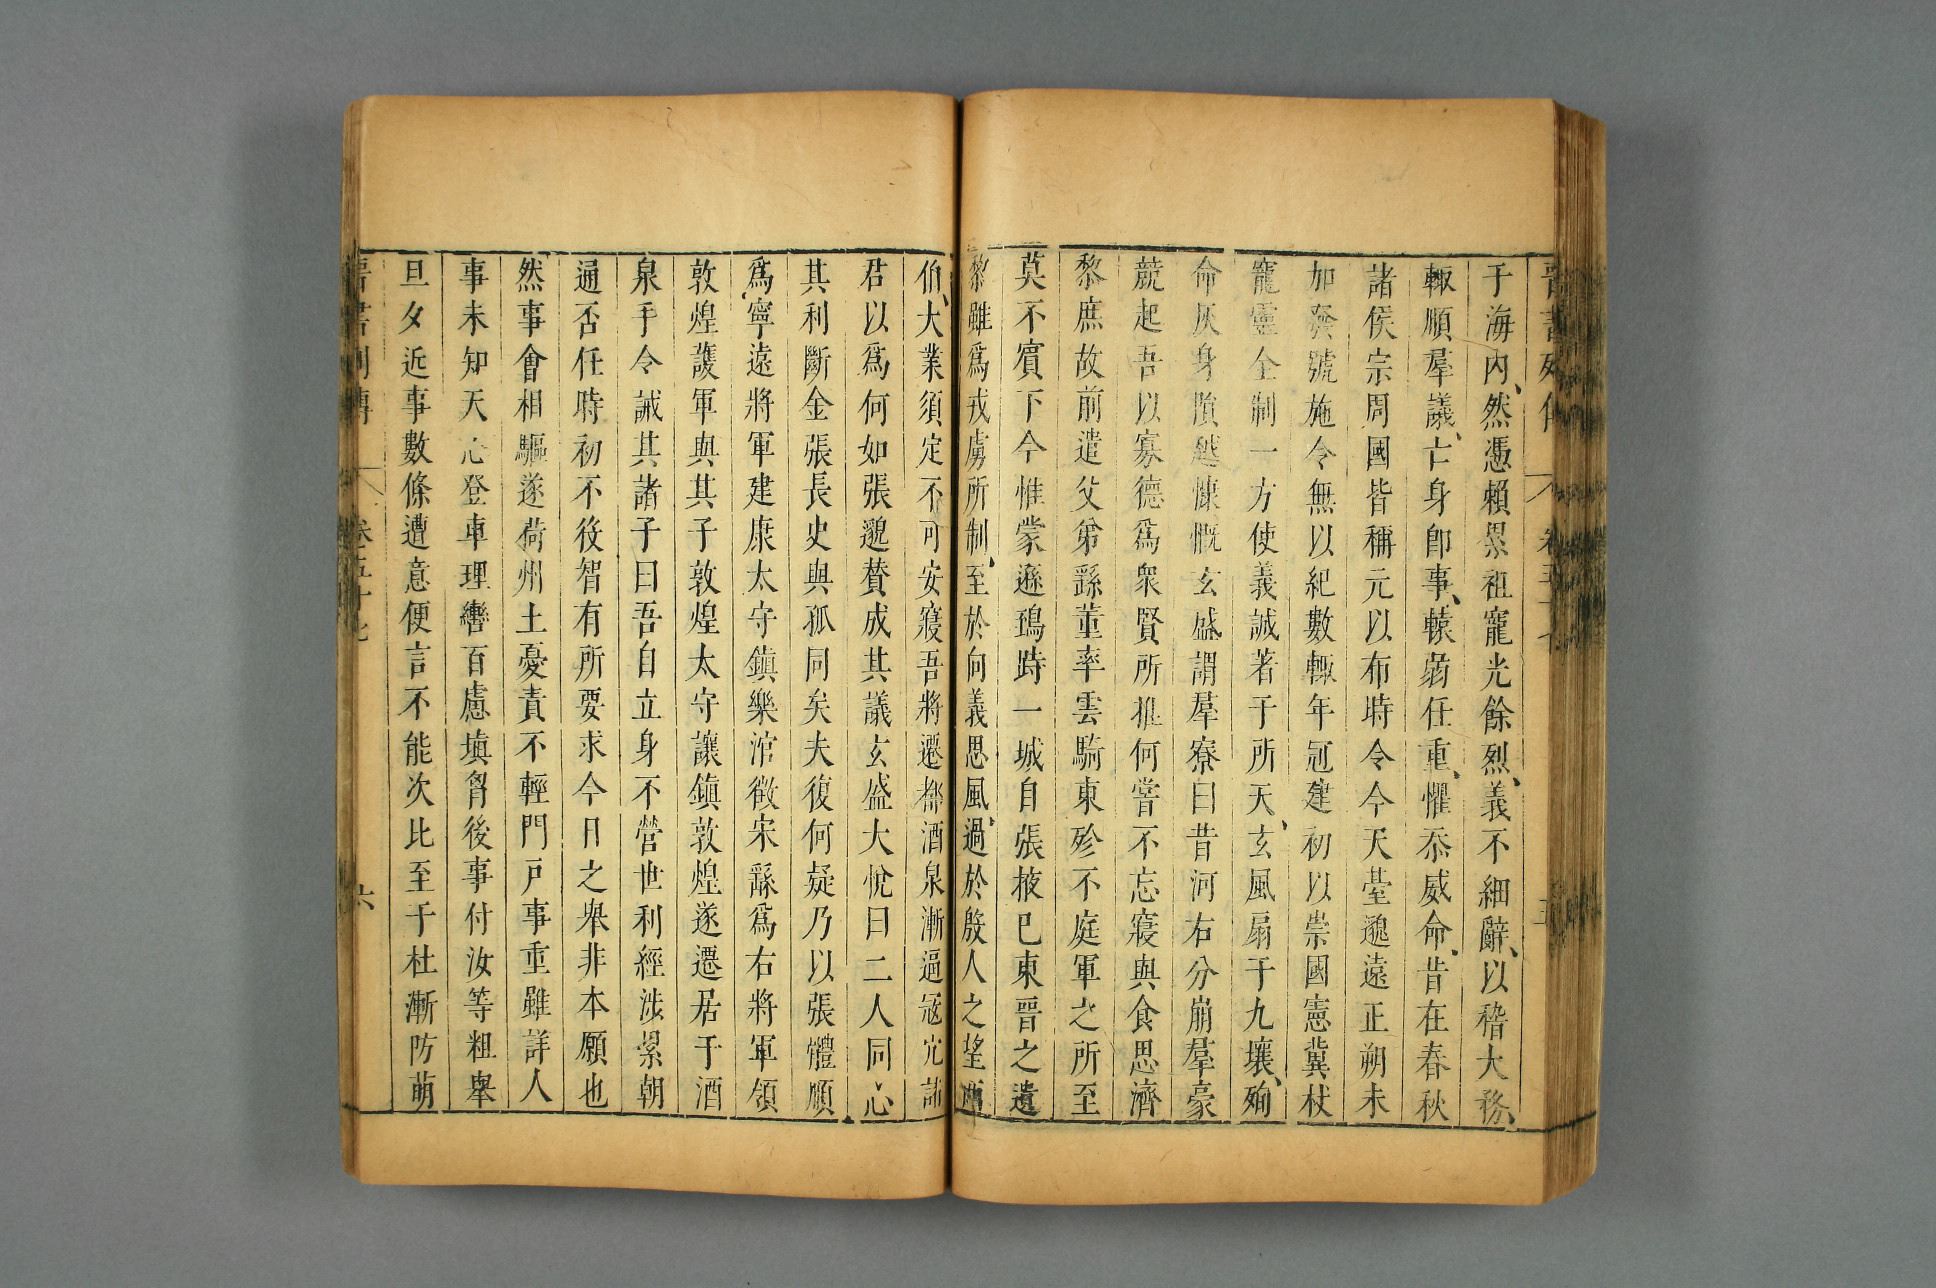 晉書列傳 卷五十七 五
于海內、然憑賴累祖寵光餘烈、義不細辭、以稽大務、
輙順羣議、亡身卽事、轅弱任重、懼忝威命、昔在春秋
諸侯宗周國皆稱元以布時令今天臺邈遠正朔未
加發號施令無以紀數輙年冠建初以崇國憲冀杖
寵靈全制一方使義誠著于所天、玄風扇于九壤、殉
命灰身隕越慷慨玄盛謂羣寮曰昔河右分崩羣豪
競起吾以寡德爲衆賢所推何嘗不忘寢與食思濟
黎庶故前遣父弟繇董率雲騎東殄不庭軍之所至
莫不賓下今惟蒙遜鴟跱一城自張掖巳東晉之遺
黎雖爲戎虜所制、至於向義思風、過於殷人之望西
伯、大業須定不可安寢吾將遷都酒泉漸逼寇穴諸
君以爲何如張邈贊成其議玄盛大悅曰二人同心
其利斷金張長史與孤同矣夫復何疑乃以張體順
爲寧遠將軍建康太守鎮樂涫徵宋繇爲右將軍領
敦煌護軍與其子敦煌太守讓鎮敦煌遂遷居于酒
泉手令誡其諸子曰吾自立身不營世利經涉累朝
通否任時初不役智有所要求今日之舉非本願也
然事會相驅遂荷州土憂責不輕門戸事重雖詳人
事未知天心登車理轡百慮塡胷後事付汝等粗舉
旦夕近事數條遭意便言不能次比至于杜漸防萌
晉書列傳 卷五十七 六